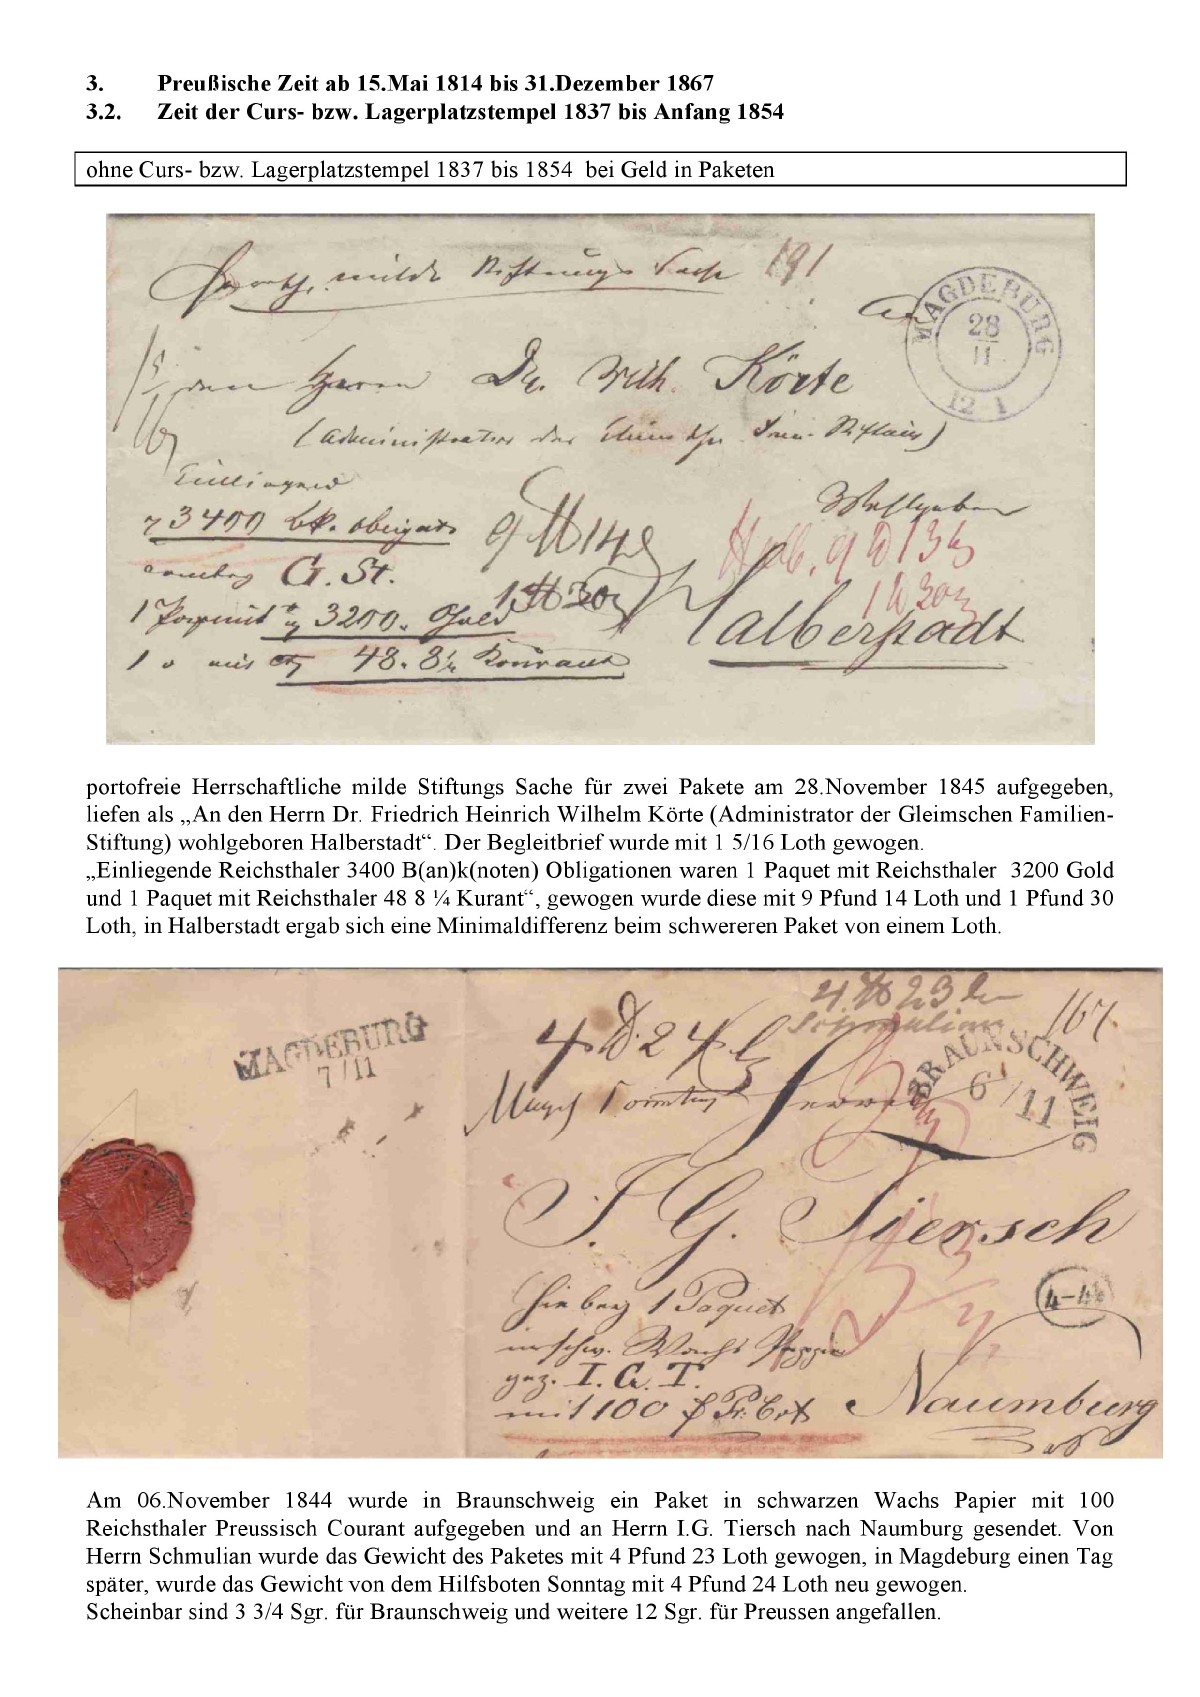 3. Preußische Zeit ab 15.Mai 1814 bis 31.Dezember 1867
3.2. Zeit der Curs- bzw. Lagerplatzstempel 1837 bis Anfang 1854
ohne Curs- bzw. Lagerplatzstempel 1837 bis 1854 bei Geld in Paketen
milde Stiftungs Sache 191
An
MAGDEBURG
28
11
12 1
den Herrn Dr. Wilh. Körte
(Administrator der
3400
9 ℔ 14
Halb. 9 ℔ 13
G. St.
1 ℔ 30
1 ℔ 30
3200 Gold
Halberstadt
1 48. 8¼ Kourant
portofreie Herrschaftliche milde Stiftungs Sache für zwei Pakete am 28.November 1845 aufgegeben,
liefen als „An den Herrn Dr. Friedrich Heinrich Wilhelm Körte (Administrator der Gleimschen Familien-
Stiftung) wohlgeboren Halberstadt“. Der Begleitbrief wurde mit 1 5/16 Loth gewogen.
„Einliegende Reichsthaler 3400 B(an)k(noten) Obligationen waren 1 Paquet mit Reichsthaler 3200 Gold
und 1 Paquet mit Reichsthaler 48 8 ¼ Kurant“, gewogen wurde diese mit 9 Pfund 14 Loth und 1 Pfund 30
Loth, in Halberstadt ergab sich eine Minimaldifferenz beim schwereren Paket von einem Loth.
4 ℔ 23
Schmulian
167.
MAGDEBURG
7/11
4 ℔ 24
BRAUNSCHWEIG
6/11
Sonntag Herrn
I. G. Tiersch
Hie bey 1 Paquet
in schw. Wachs Pappier
4-4½
gez. I. G. T.
mit 100 Pr. Crt
Naumburg
Am 06.November 1844 wurde in Braunschweig ein Paket in schwarzen Wachs Papier mit 100
Reichsthaler Preussisch Courant aufgegeben und an Herrn I.G. Tiersch nach Naumburg gesendet. Von
Herrn Schmulian wurde das Gewicht des Paketes mit 4 Pfund 23 Loth gewogen, in Magdeburg einen Tag
später, wurde das Gewicht von dem Hilfsboten Sonntag mit 4 Pfund 24 Loth neu gewogen.
Scheinbar sind 3 3/4 Sgr. für Braunschweig und weitere 12 Sgr. für Preussen angefallen.